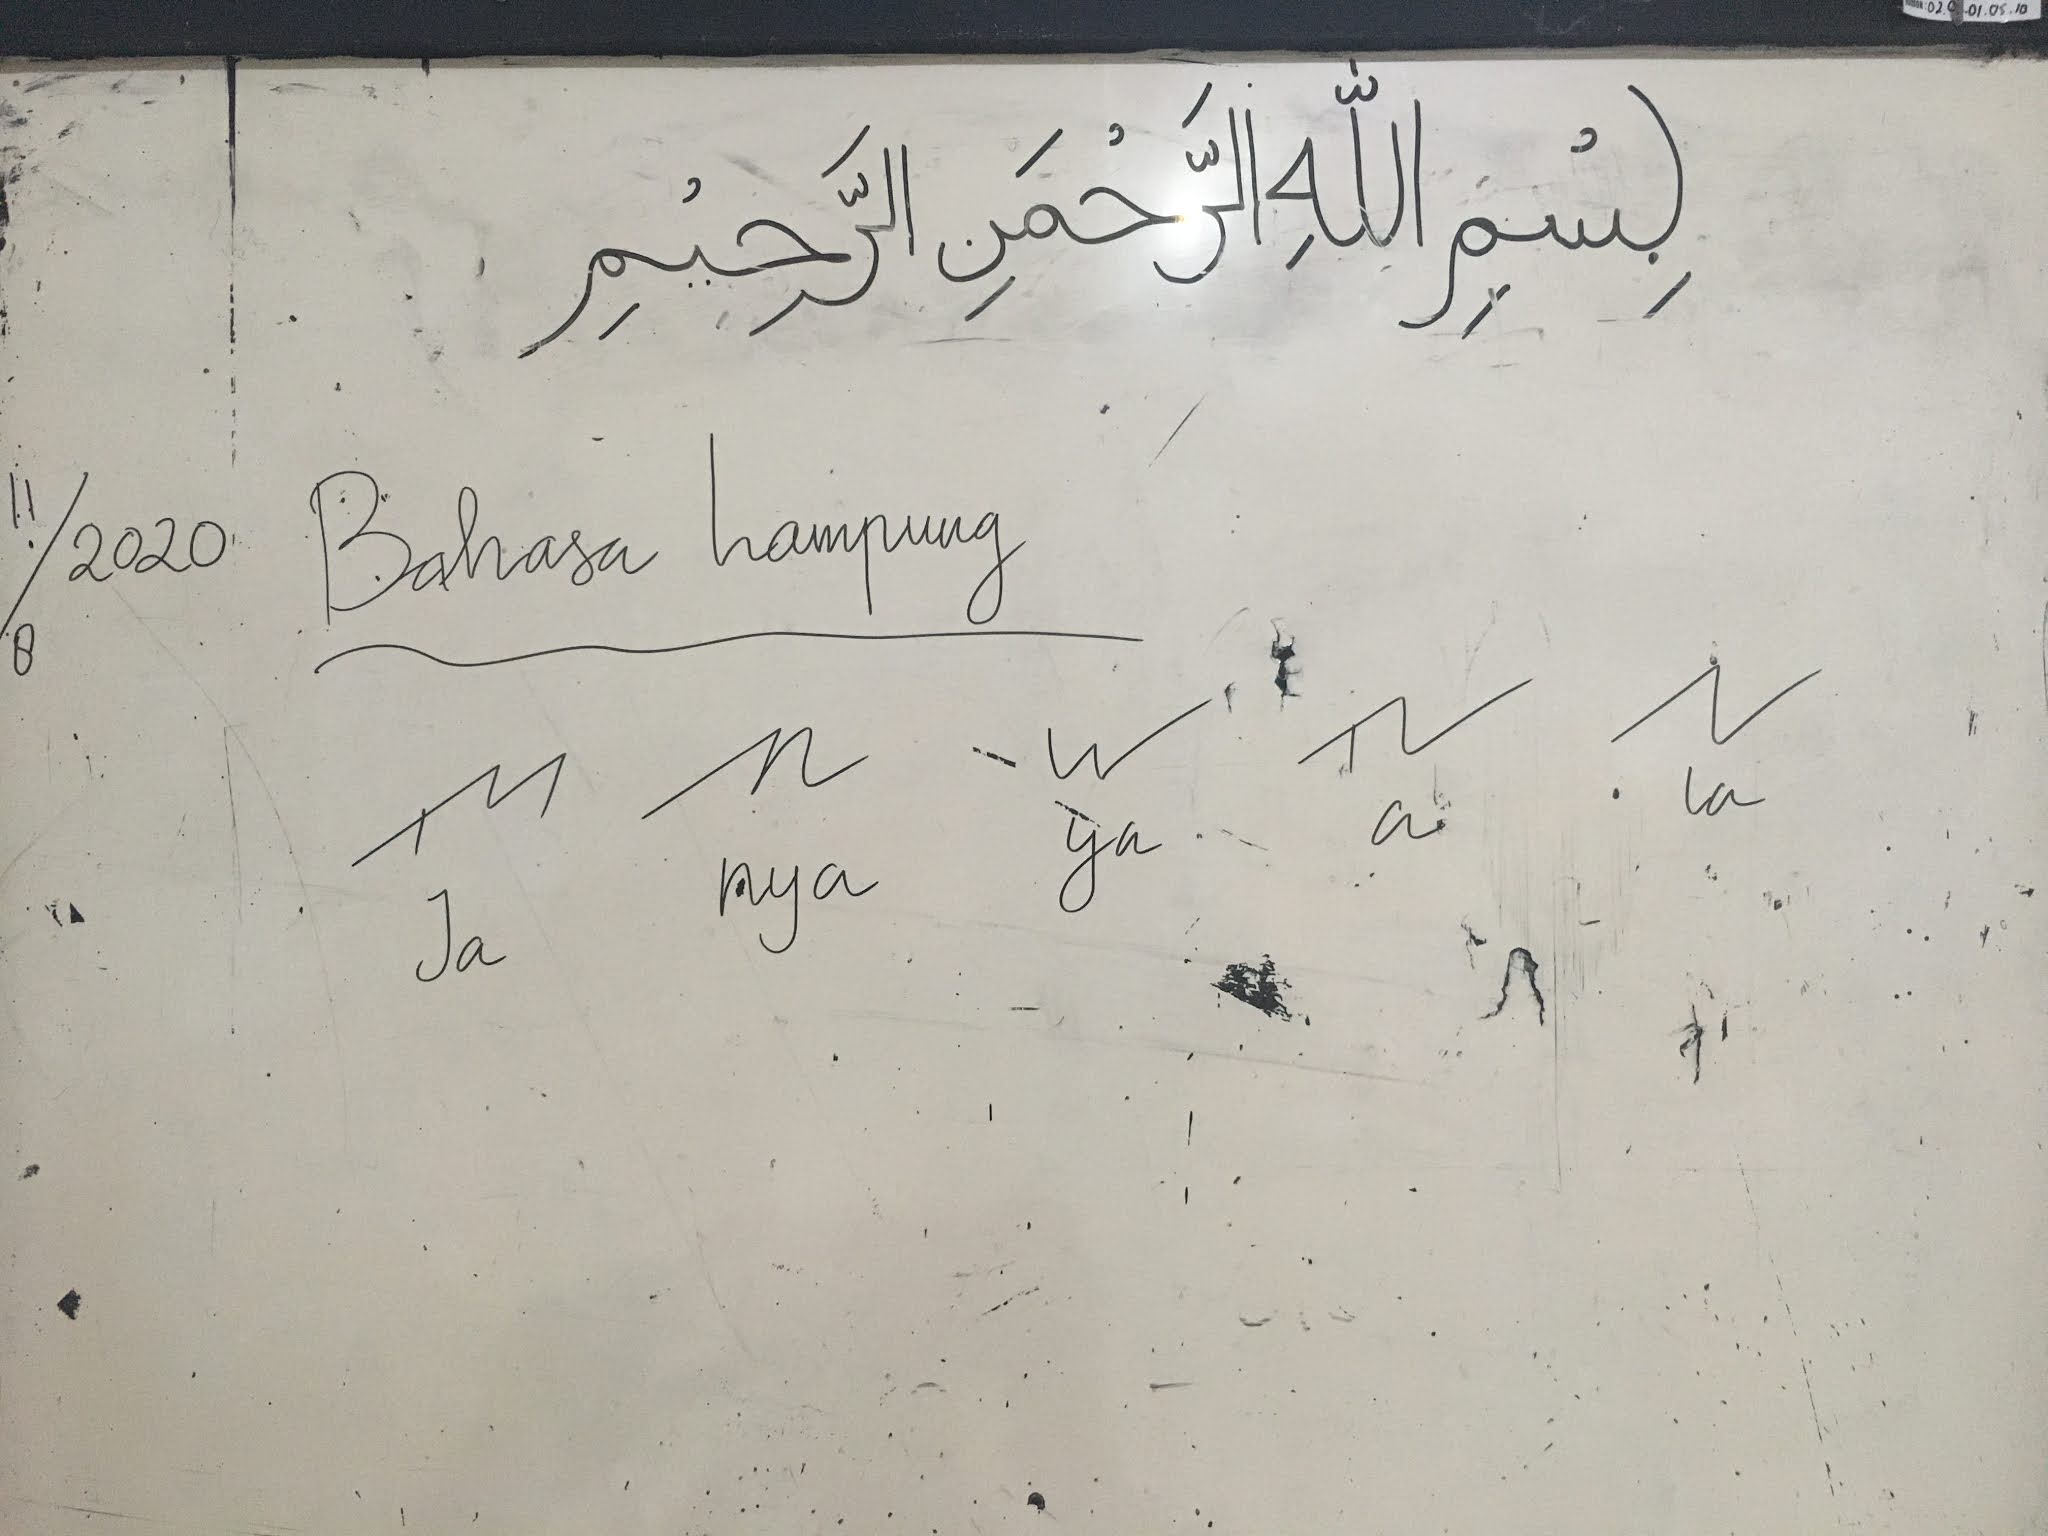 02.0 .01.05.10
بِسْمِ اللّٰهِ الرَّحْمَنِ الرَّحِيْمِ
11/8 2020
Bahasa Lampung
Ja nya ya a la